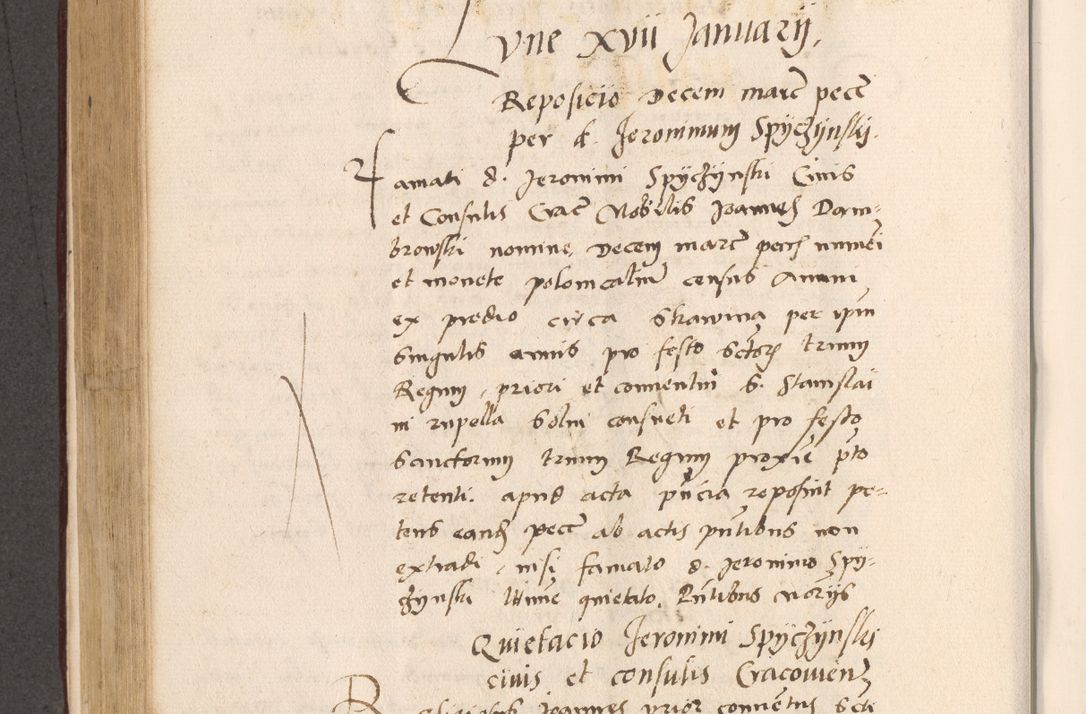 Lune XVII Januarij.
Reposicio Decem marc pecc
per d. Jeronimum Spyczynskij.
Famati d. Jeronimi Spyczynski Civis
et Consulis Crac Nobilis Joannes Dam-
browski nomine, Decem marc pecc numeri
et monete polonicalium census Annui
ex predio circa Skawina per ipm
singulis annis pro festo sctorz trium
Regum, priori et conventui S. Stanislai
in rupella solui consueti et pro festo
sanctorum trium Regum proxie pto
retenti. apud acta pncia reposuit pe-
tens eandz pecc ab actis pntibus non
extradi, nisi famato d. Jeronimo Spy-
czynski quietato. Pntibus Noriis
Quietacio Jeronimi Spyczynskij
civis et consulis Cracovienz
Religiosus Joannes prior conventus Scti